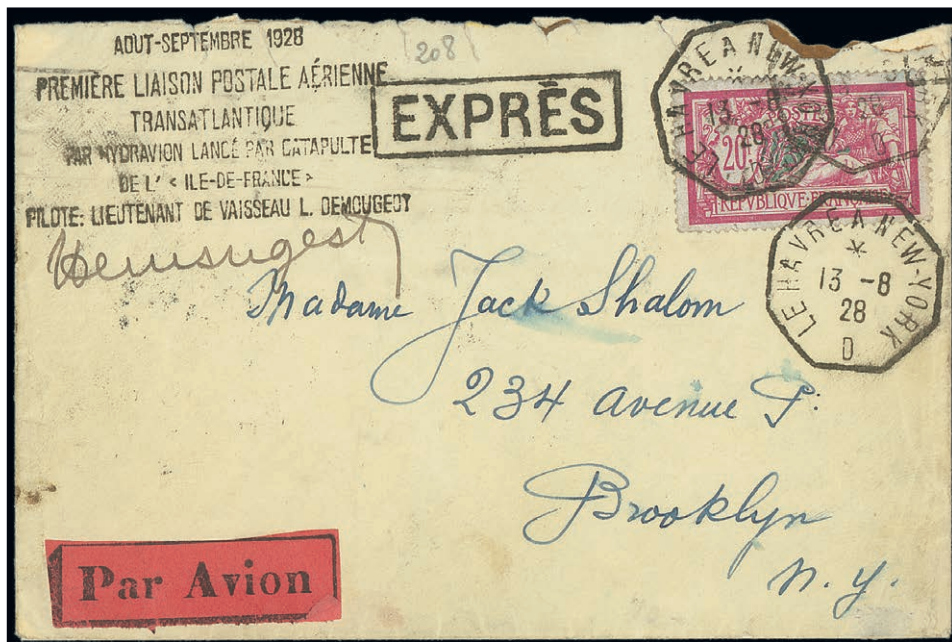 AOUT-SEPTEMBRE 1928
PREMIÈRE LIAISON POSTALE AÉRIENNE
TRANSATLANTIQUE
PAR HYDRAVION LANCÉ PAR CATAPULTE
DE L' « ILE-DE-FRANCE »
PILOTE: LIEUTENANT DE VAISSEAU L. DEMOUGEOT
Demougeot
208
EXPRÈS
LE HAVRE A NEW-YORK
13 -8
28
POSTES
20f
REPVBLIQVE·FRANÇAISE
LE HAVRE A NEW-YORK
*
13 -8
28
D
Madame Jack Shalom
234 Avenue P.
Brooklyn
N.Y.
Par Avion